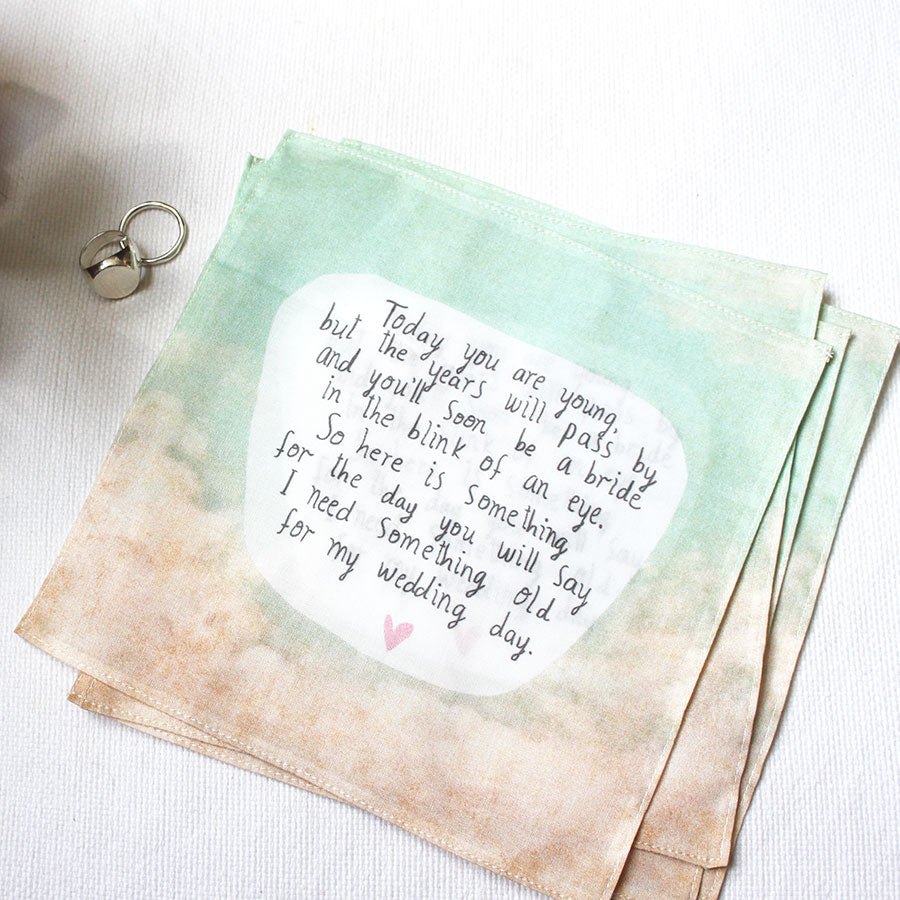 Today you are young,
but the years will pass by
and you'll soon be a bride
in the blink of an eye.
So here is something
for the day you will say
I need something old
for my wedding day.